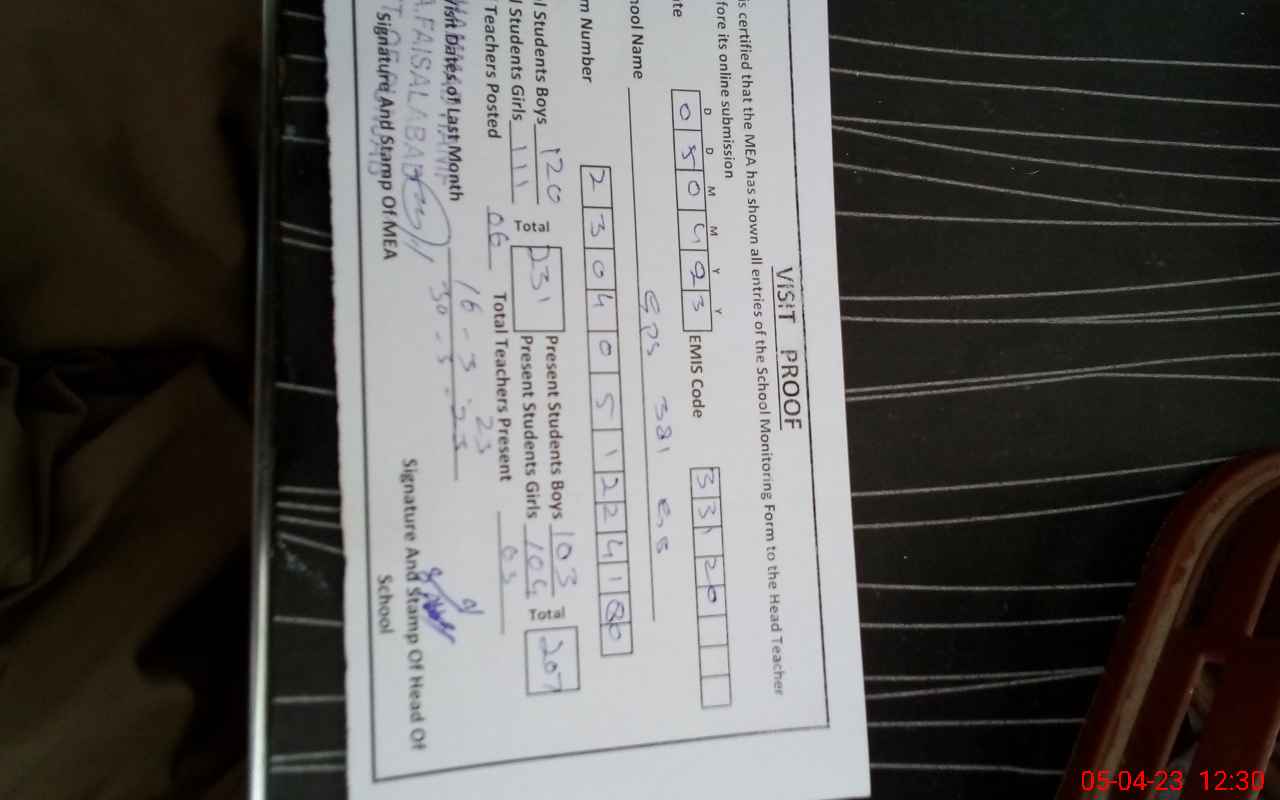 VISIT PROOF
is certified that the MEA has shown all entries of the School Monitoring Form to the Head Teacher
fore its online submission
D D M M Y Y
ate 050423 EMIS Code 33120
hool Name GPS 381
m Number 230405122418
l Students Boys 120 Total 231 Present Students Boys 103 Total 207
l Students Girls 111 Present Students Girls 104
Teachers Posted 06 Total Teachers Present 03
Visit Dates of Last Month 16-3-23
30-3-23
A.FAISALABAD
Signature And Stamp Of MEA
Signature And Stamp Of Head Of
School
05-04-23 12:30